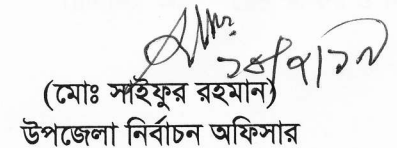 (মোঃ সাইফুর রহমান)
উপজেলা নির্বাচন অফিসার